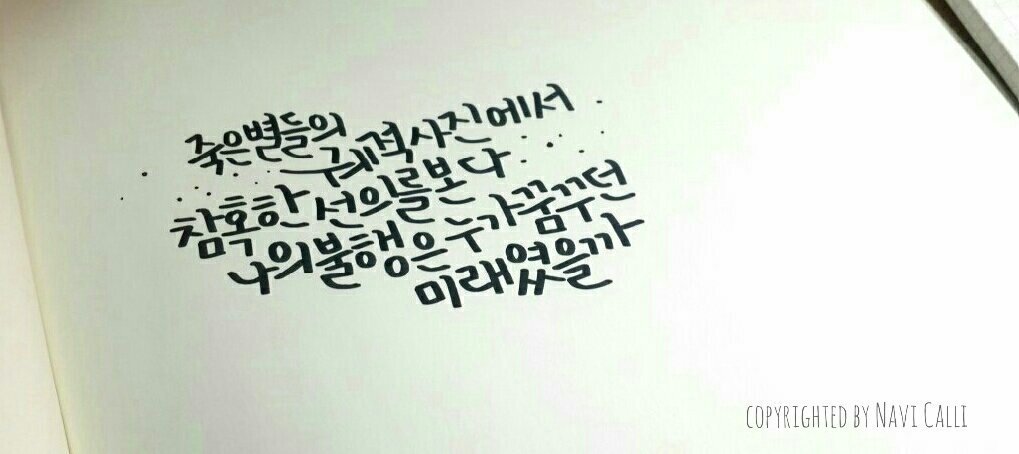 죽은별들의
궤적사진에서
참혹한 선의를본다
나의불행은 누가꿈꾸던
미래였을까
COPYRIGHTED BY NAVI CALLI